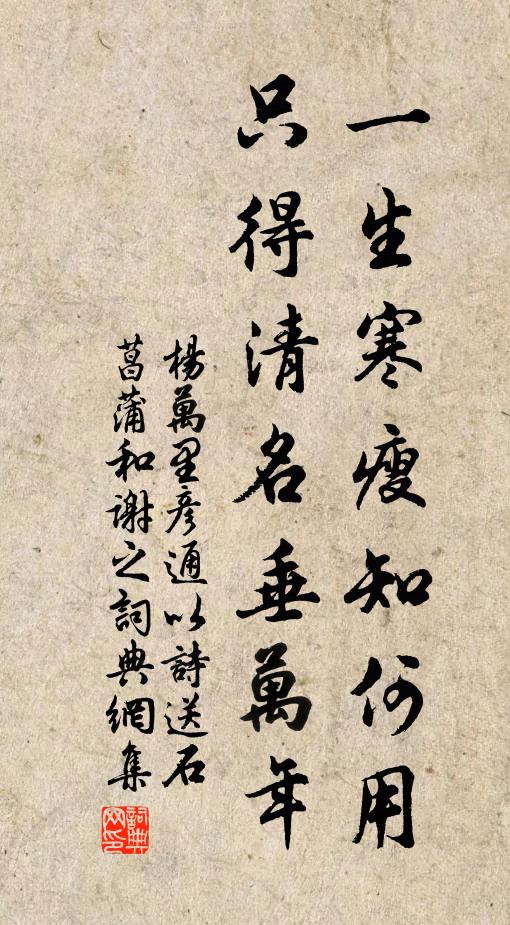 一生寒瘦知何用
只得清名垂萬年
楊萬里彦通以詩送石
菖蒲和謝之詞典網集
詞典网印